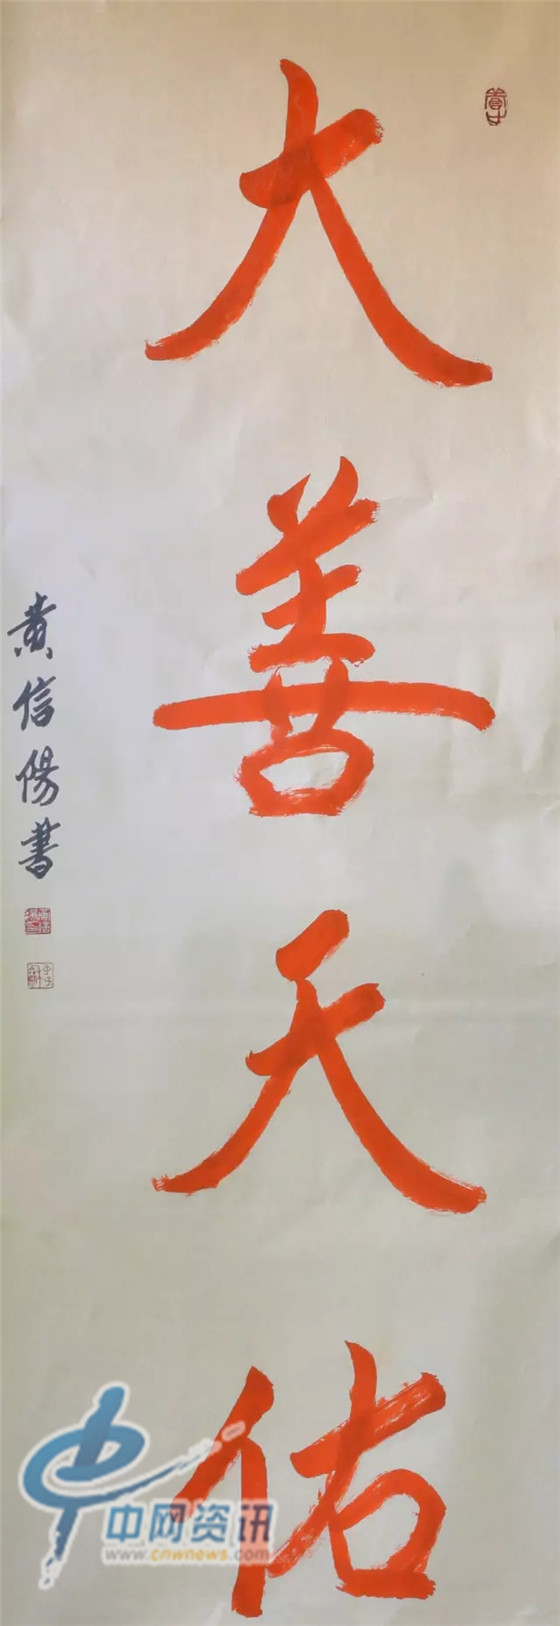 大善天佑
黄信陽書
中网资讯
www.cnwnews.com